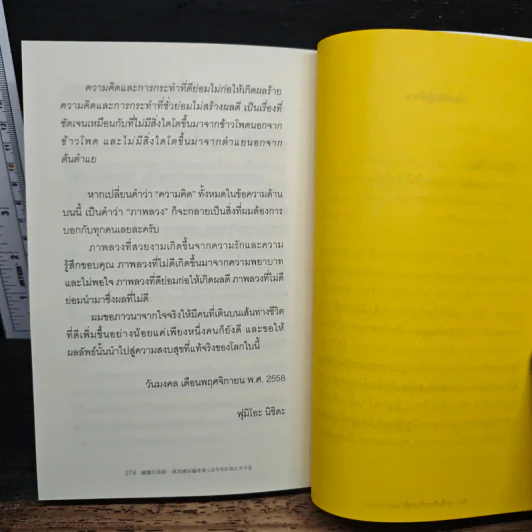 ความคิดและการกระทำที่ดีย่อมไม่ก่อให้เกิดผลร้าย
ความคิดและการกระทำที่ชั่วย่อมไม่สร้างผลดี เป็นเรื่องที่
ชัดเจนเหมือนกับที่ไม่มีสิ่งใดโตขึ้นมาจากข้าวโพดนอกจาก
ข้าวโพด และไม่มีสิ่งใดโตขึ้นมาจากตำแยนอกจาก
ต้นตำแย
หากเปลี่ยนคำว่า "ความคิด" ทั้งหมดในข้อความด้าน
บนนี้ เป็นคำว่า "ภาพลวง" ก็จะกลายเป็นสิ่งที่ผมต้องการ
บอกกับทุกคนเลยละครับ
ภาพลวงที่สวยงามเกิดขึ้นจากความรักและความ
รู้สึกขอบคุณ ภาพลวงที่ไม่ดีเกิดขึ้นมาจากความพยาบาท
และไม่พอใจ ภาพลวงที่ดีย่อมก่อให้เกิดผลดี ภาพลวงที่ไม่ดี
ย่อมนำมาซึ่งผลที่ไม่ดี
ผมขอภาวนาจากใจจริงให้มีคนที่เดินบนเส้นทางชีวิต
ที่ดีเพิ่มขึ้นอย่างน้อยแค่เพียงหนึ่งคนก็ยังดี และขอให้
ผลลัพธ์นั้นนำไปสู่ความสงบสุขที่แท้จริงของโลกใบนี้
วันมงคล เดือนพฤศจิกายน พ.ศ. 2558
ฟุมิโอะ นิชิดะ
274